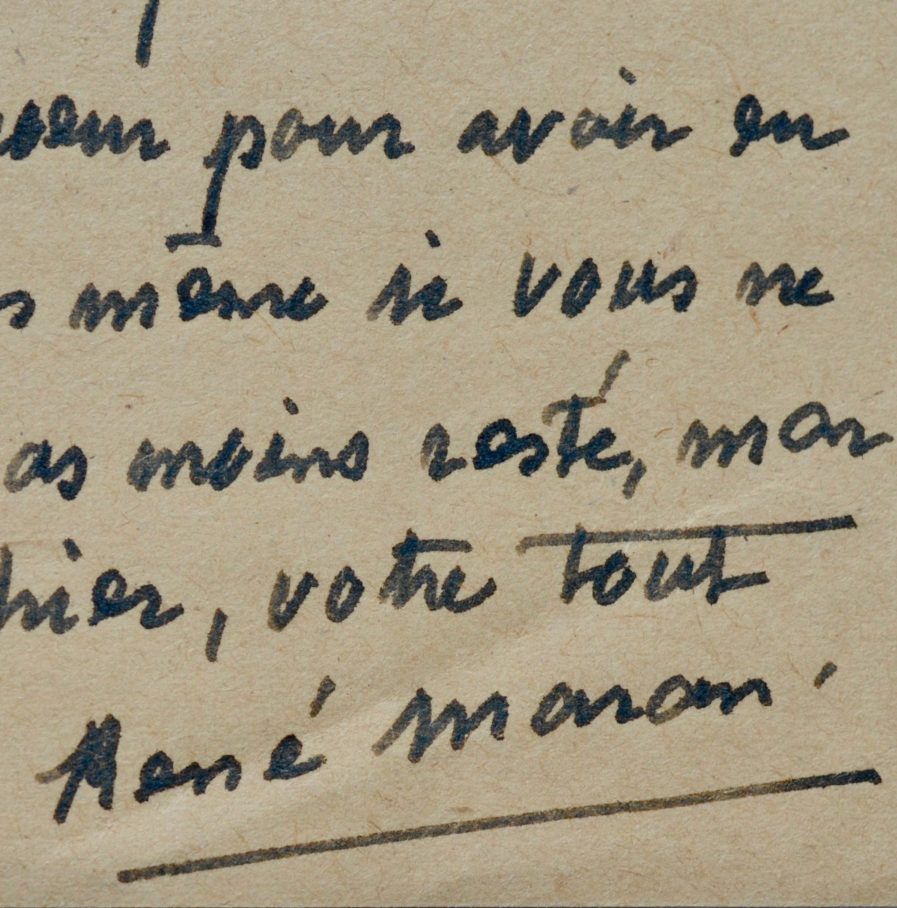 pour avoir eu
même si vous ne
as moins resté, mon
trier, votre tout
René Maran.